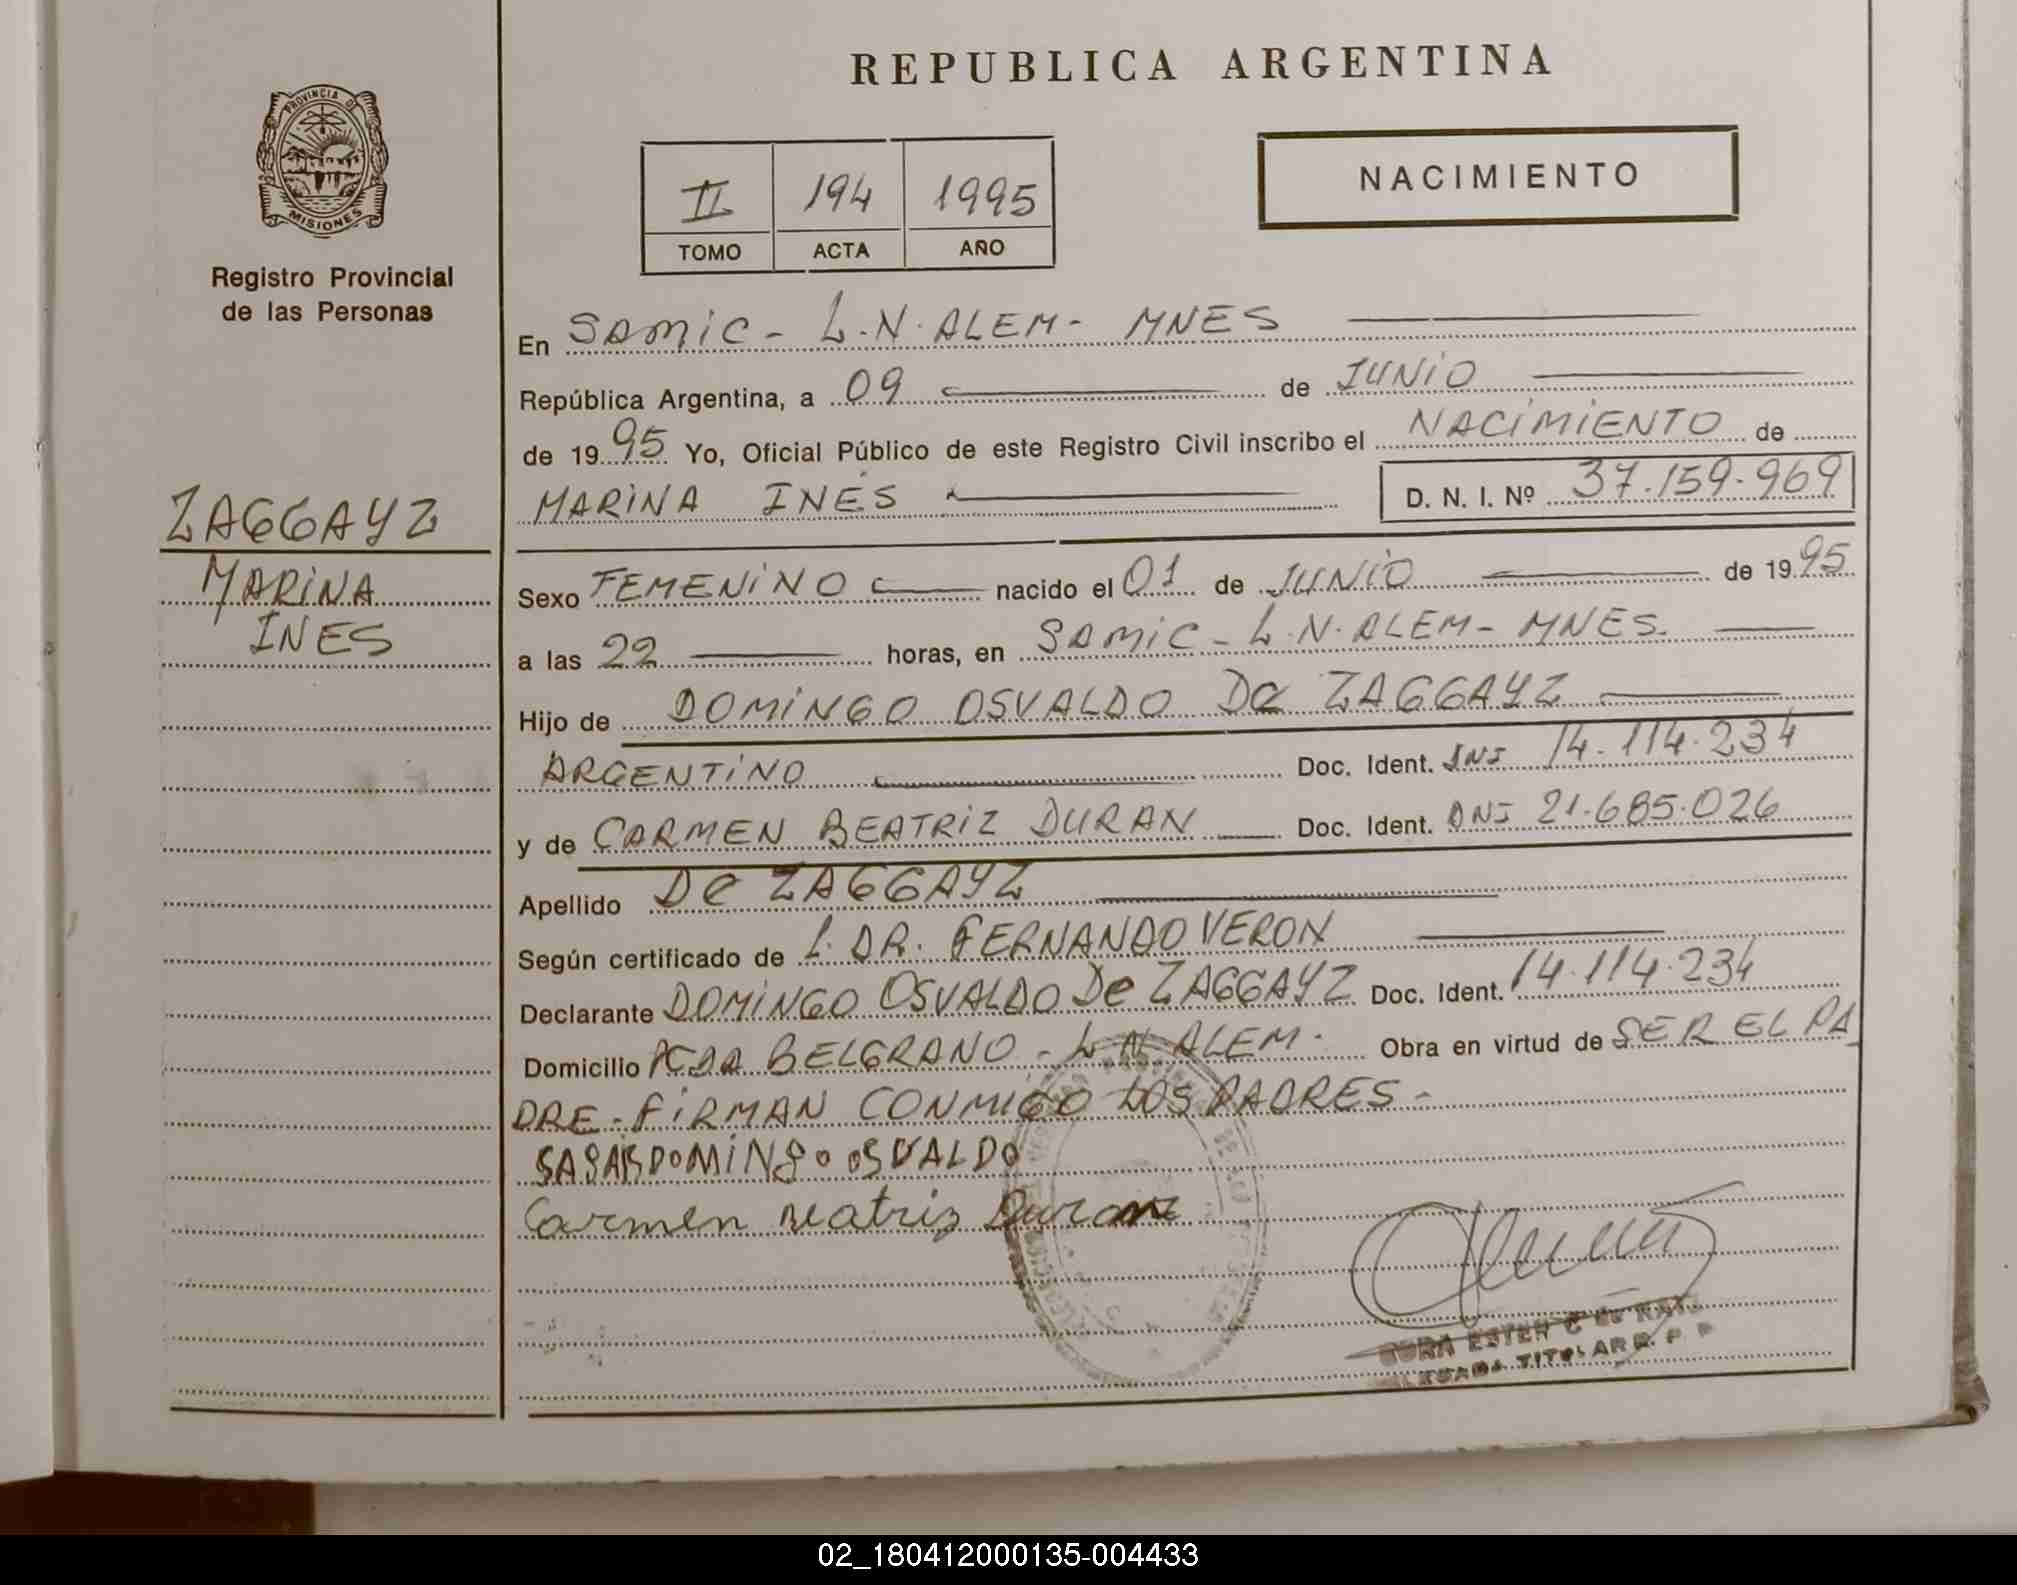 REPUBLICA ARGENTINA
PROVINCIA DE
MISIONES
Registro Provincial
de las Personas
II 194 1995
TOMO ACTA AÑO
NACIMIENTO
En SAMIC - L.N. ALEM - MNES
República Argentina, a 09 de JUNIO
de 1995 Yo, Oficial Público de este Registro Civil inscribo el NACIMIENTO de
MARINA INÉS D. N. I. Nº 37.159.969
ZAGGAYZ
MARINA
INES
Sexo FEMENINO nacido el 01 de JUNIO de 1995
a las 22 horas, en SAMIC - L.N. ALEM - MNES.
Hijo de DOMINGO OSVALDO De ZAGGAYZ
ARGENTINO Doc. Ident. DNI 14.114.234
y de CARMEN BEATRIZ DURAN Doc. Ident. DNI 21.685.026
Apellido De ZAGGAYZ
Según certificado de L. DR. FERNANDO VERON
Declarante DOMINGO OSVALDO De ZAGGAYZ Doc. Ident. 14.114.234
Domicilio PCDA BELGRANO - L.N. ALEM - Obra en virtud de SER EL PA
DRE - FIRMAN CONMIGO LOS PADRES -
DOMINGO OSVALDO
Carmen Beatriz Duran
ESTER
TITULAR R. P. P.
02_180412000135-004433